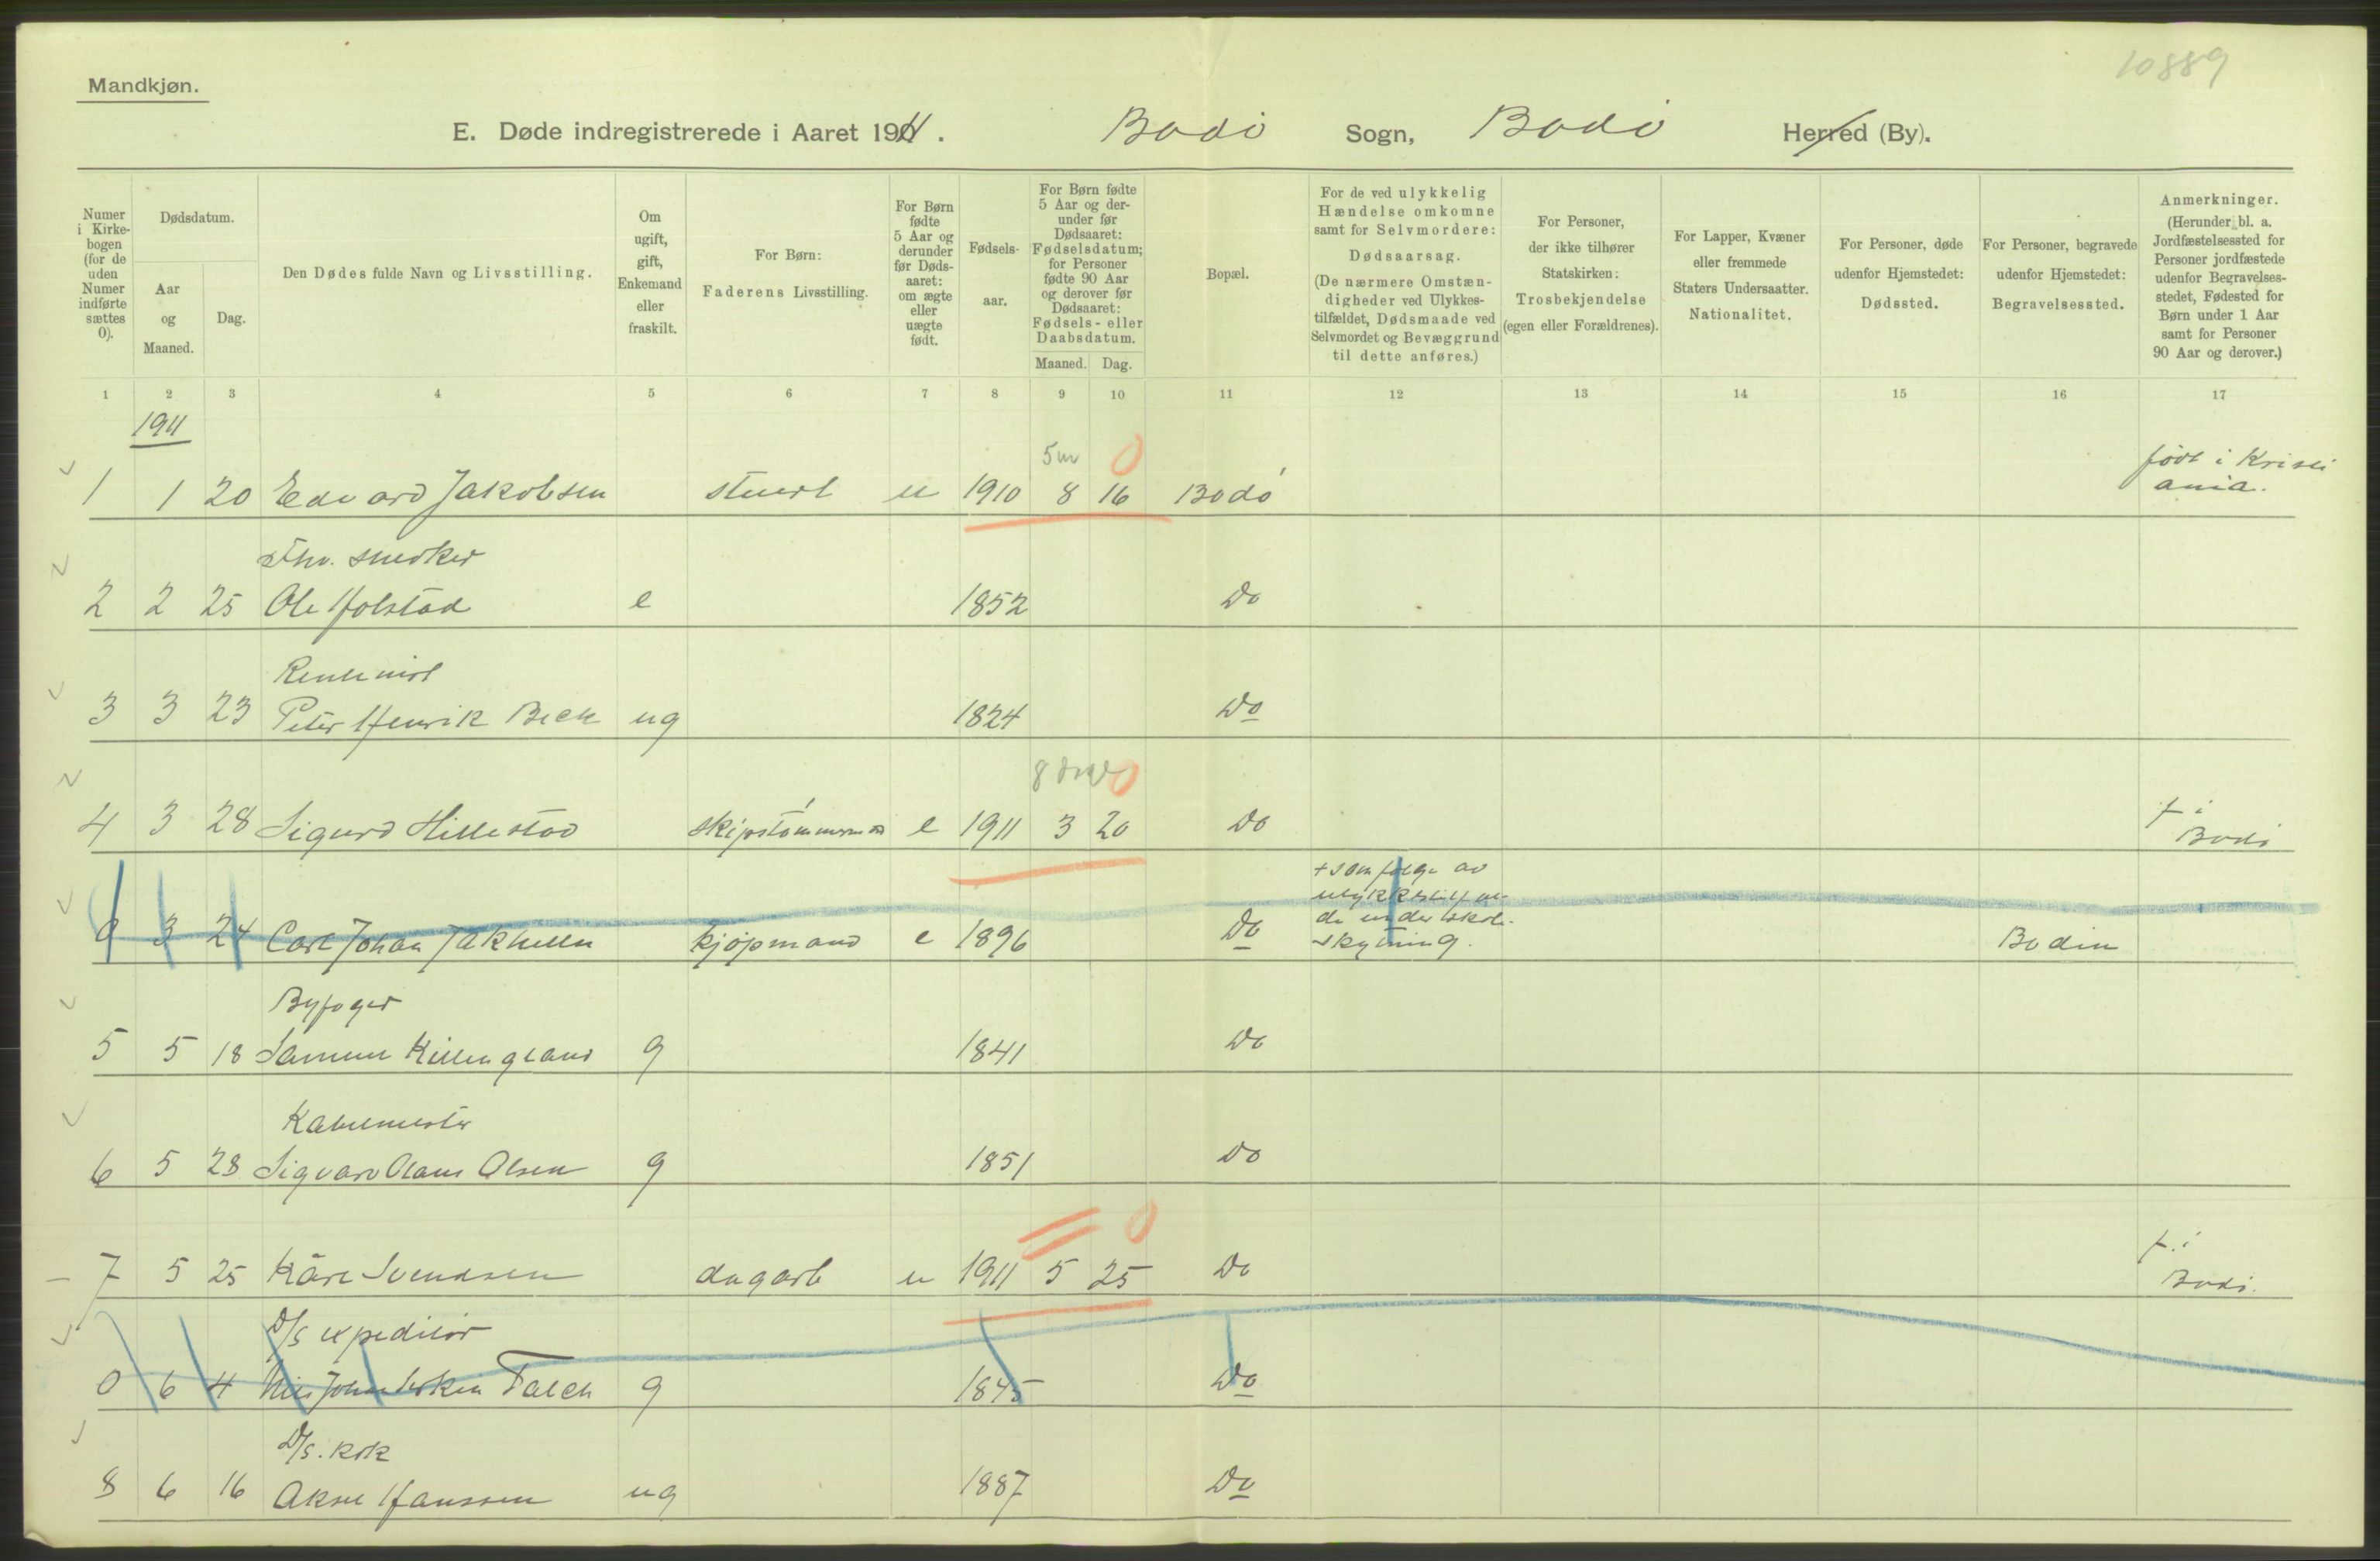 10889
Mandkjøn.
E. Døde indregistrerede i Aaret 1911. Bodö Sogn, Bodö Herred (By).
Numer i Kirke-bogen (for de uden Numer indførte sættes 0).
Dødsdatum.
Aar og Maaned.
Dag.
Den Dødes fulde Navn og Livsstilling.
Om ugift, gift, Enkemand eller fraskilt.
For Børn: Faderens Livsstilling.
For Børn fødte 5 Aar og derunder før Døds-aaret: om ægte eller uægte født.
Fødsels-aar.
For Børn fødte 5 Aar og der-under før Dødsaaret: Fødselsdatum; for Personer fødte 90 Aar og derover før Dødsaaret: Fødsels- eller Daabsdatum.
Maaned. Dag.
Bopæl.
For de ved ulykkelig Hændelse omkomne samt for Selvmordere: Dødsaarsag. (De nærmere Omstæn-digheder ved Ulykkes-tilfældet, Dødsmaade ved Selvmordet og Bevæggrund til dette anføres.)
For Personer, der ikke tilhører Statskirken: Trosbekjendelse (egen eller Forældrenes).
For Lapper, Kvæner eller fremmede Staters Undersaatter. Nationalitet.
For Personer, døde udenfor Hjemstedet: Dødssted.
For Personer, begravede udenfor Hjemstedet: Begravelsessted.
Anmerkninger. (Herunder bl. a. Jordfæstelsessted for Personer jordfæstede udenfor Begravelses-stedet, Fødested for Børn under 1 Aar samt for Personer 90 Aar og derover.)
1 2 3 4 5 6 7 8 9 10 11 12 13 14 15 16 17
1911
5 m 0
født i Kristi
1 1 20 Edvard Jakobsen stuert u 1910 8 16 Bodö ania.
Fhv. snedker
2 2 25 Ole Holstad e 1852 Do
Rentenist
3 3 23 Peter Henrik Beck ug 1824 Do
8 0
f. i
4 3 28 Sigurd Hillestad skipstömmerm e 1911 3 20 Do Bodö
+ som følge av
ulykkestilfæl-
de under skole-
0 3 24 Carl Johan Jakhelln kjöpmand e 1896 Do skytning. Bodin
Byfoged
5 5 18 Samuel Killengland g 1841 Do
Kabelmester
6 5 28 Sigvard Olaus Olsen g 1851 Do
0
f. i
7 5 25 Kåre Svendsen dagarb u 1911 5 25 Do Bodö.
D/S expeditör
0 6 4 Nils Johan Falch g 1845 Do
D/S. kok
8 6 16 Aksel Hanssen ug 1887 Do